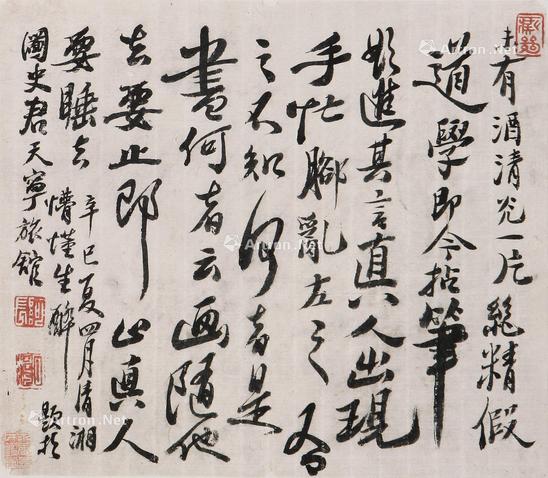 有酒清光一片精假
道學即今拈筆
進其言直人出現
手忙腳亂左之右
之不知何者是
畫何者云画隨他
去要止即止真人
要睡去
辛巳夏四月清湘
懵懂生醉題於
閬史君天寧旅館
Artron.Net